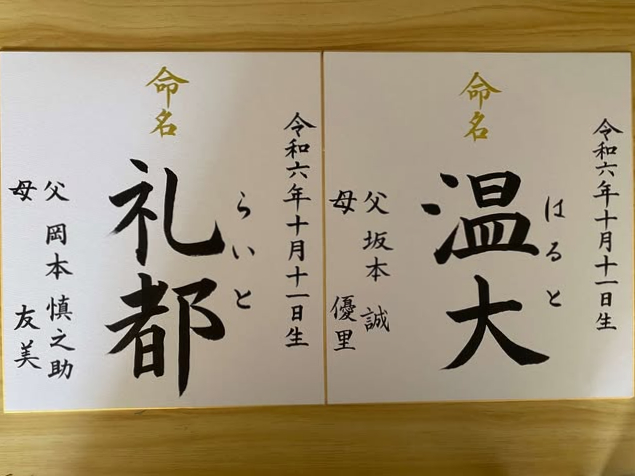 命名
令和六年十月十一日生
はると
温大
父 坂本 誠
母 優里
命名
令和六年十月十一日生
らいと
礼都
父 岡本 慎之助
母 友美